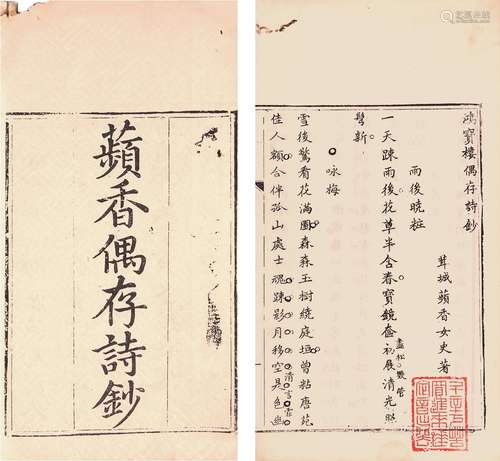 蘋香偶存詩鈔
鴻寶樓偶存詩鈔
茸城蘋香女史著
雨後曉粧
一天踈雨後花草半含春寶鏡奩初展清光照
鬢新
咏梅
雪後驚看花滿園森森玉樹繞庭垣曾粘唐苑
佳人額合伴孤山處士魂踈影月移空是色幽